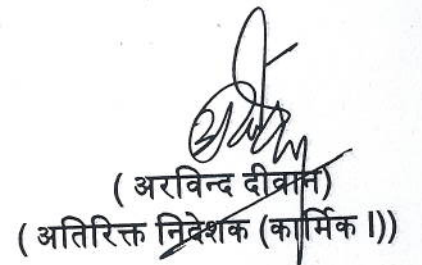 ( अरविन्द दीवान)
( अतिरिक्त निदेशक (कार्मिक I))